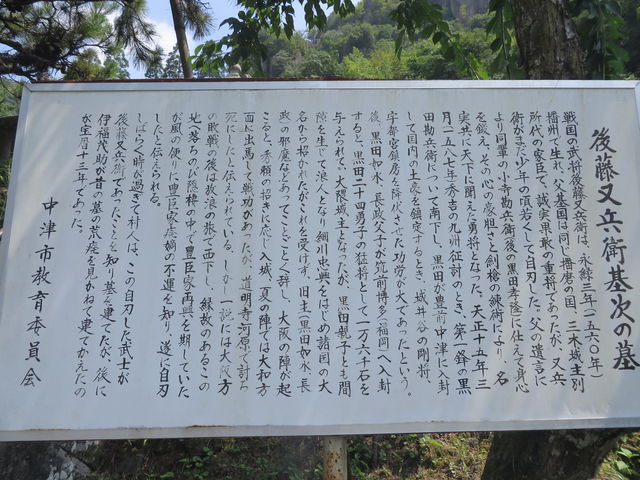 後藤又兵衛基次の墓
戦国の武将後藤又兵衛は、永禄三年(一五六〇年)
播州で生れ、父基国は同じ播磨の国、三木城主別
所代の家臣で、誠実果敢の重将であったが、又兵
衛がまだ少年の頃若くして自刃した。父の遺言に
より同輩の小寺勘兵衛(後の黒田孝隆)に仕えて身心
を鍛え、その心の豪胆さと剣槍の練術により、名
実共に天下に聞えた勇将となった。天正十五年三
月(一五八七年)秀吉の九州征討のとき、第一鋒の黒
田勘兵衛について南下し、黒田が豊前中津に入封
して国内の土豪を鎮定するとき、城井谷の剛将、
宇都宮鎮房を降伏させた功労が大であったという。
後、黒田如水、長政父子が筑前博多(福岡)へ入封
すると、黒田二十四勇子の猛将として一万六千石を
与えられ、大隈城主となったが、黒田親子とも間
隙を生じて浪人となり、細川忠興をはじめ諸国の大
名から招かれたがこれを受けず、旧主(黒田如水、長
政)の邪魔などあってことごとく辞し、大阪の陣が起
こると、秀頼の招きに応じ入城、夏の陣では大和方
面に出馬して戦功があったが、道明寺河原で討ち
死にしたと伝えられている。しかし一説には大阪方
の敗戦の後は放浪の旅で西下し、縁故のあるこの
地に落ちのび隠棲の中で豊臣家再興を期していた
が風の便りに豊臣家痛嫡の不運を知り、遂に自刃
したと伝えられる。
しばらく時が過ぎて村人は、この自刃した武士が
後藤又兵衛であったことを知り墓を建てたが、後に
伊福茂助が昔の墓の荒廃を見かねて建てかえたの
が宝暦十三年であった。
中津市教育委員会